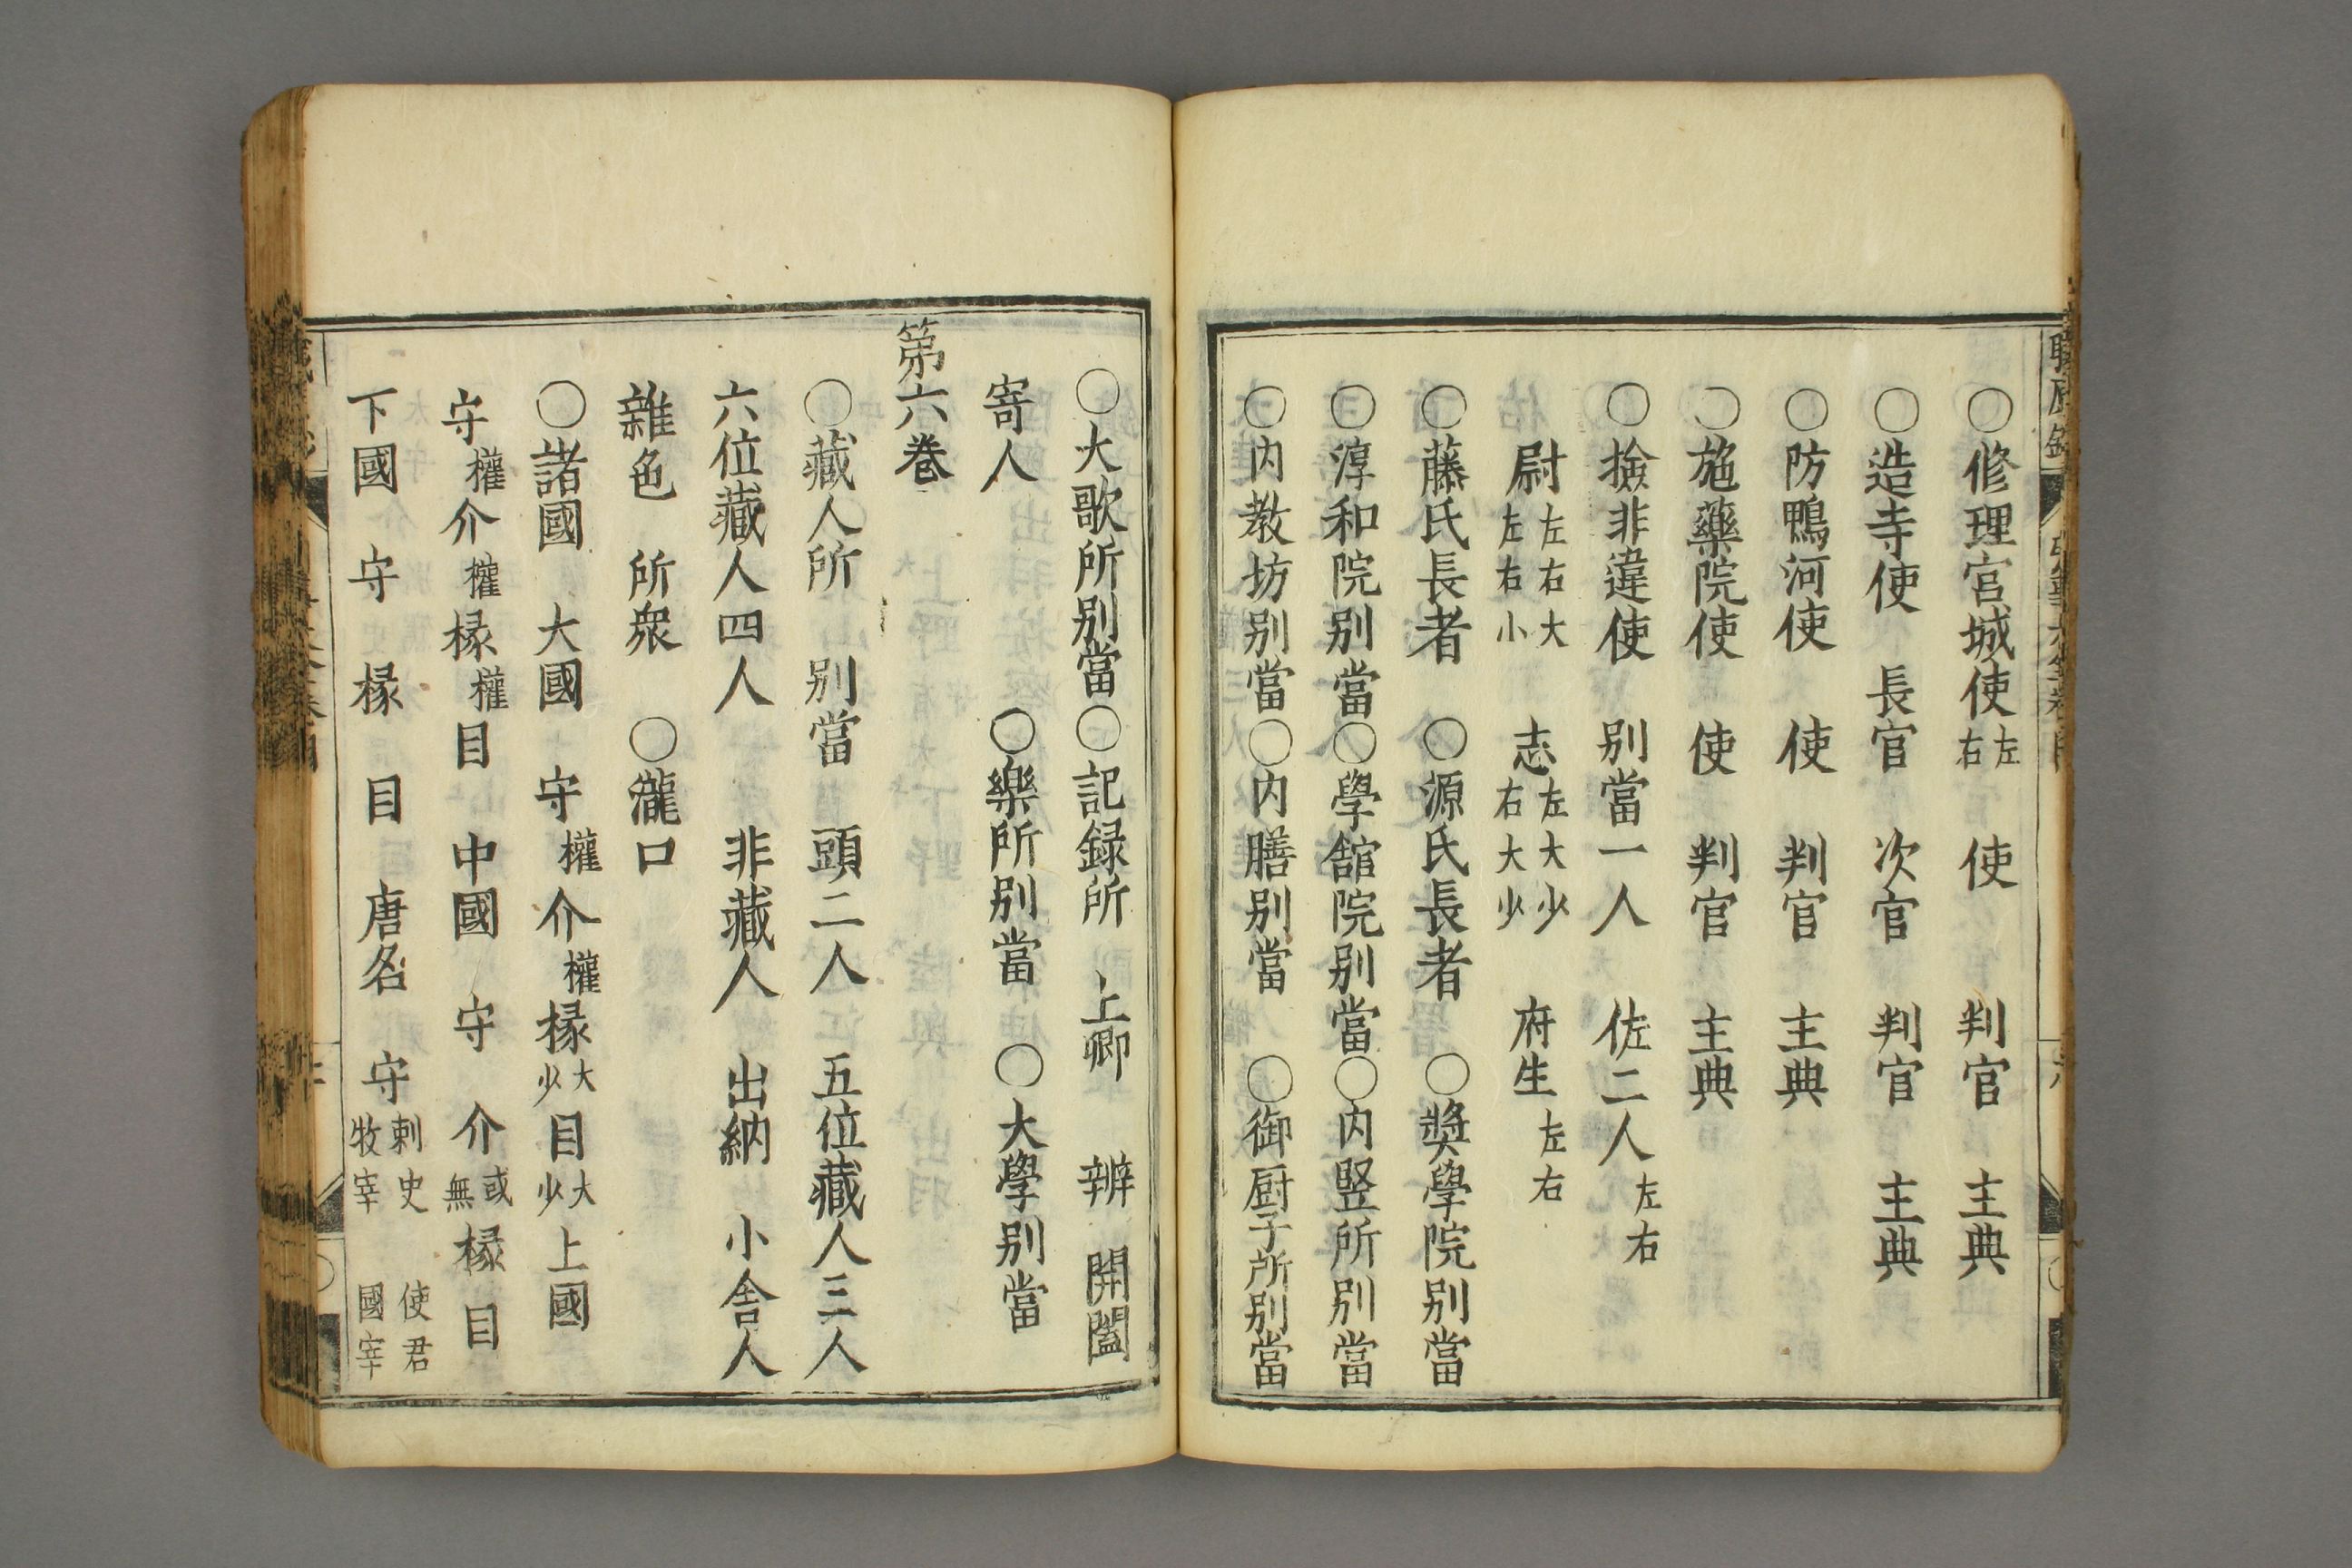 ○修理宮城使左右　使　判官　主典
○造寺使　長官　次官　判官　主典
○防鴨河使　使　判官　主典
○施藥院使　使　判官　主典
○撿非違使　別當一人　佐二人左右
尉左右大左右小　志左大少右大少　府生左右
○藤氏長者　○源氏長者　○奬學院別當
○淳和院別當○學館院別當○内竪所別當
○内教坊別當○内膳別當　○御厨子所別當
○大歌所別當○記録所　上卿　辨　開闔
寄人　○樂所別當　○大學別當
第六巻
○藏人所　別當　頭二人　五位藏人三人
六位藏人四人　非藏人　出納　小舎人
雜色　所衆　○瀧口
○諸國　大國　守權介權掾大少目大少上國
守權介權掾權目　中國　守　介或無掾目
下國　守　掾　目　唐名　守刺史牧宰　使君國宰